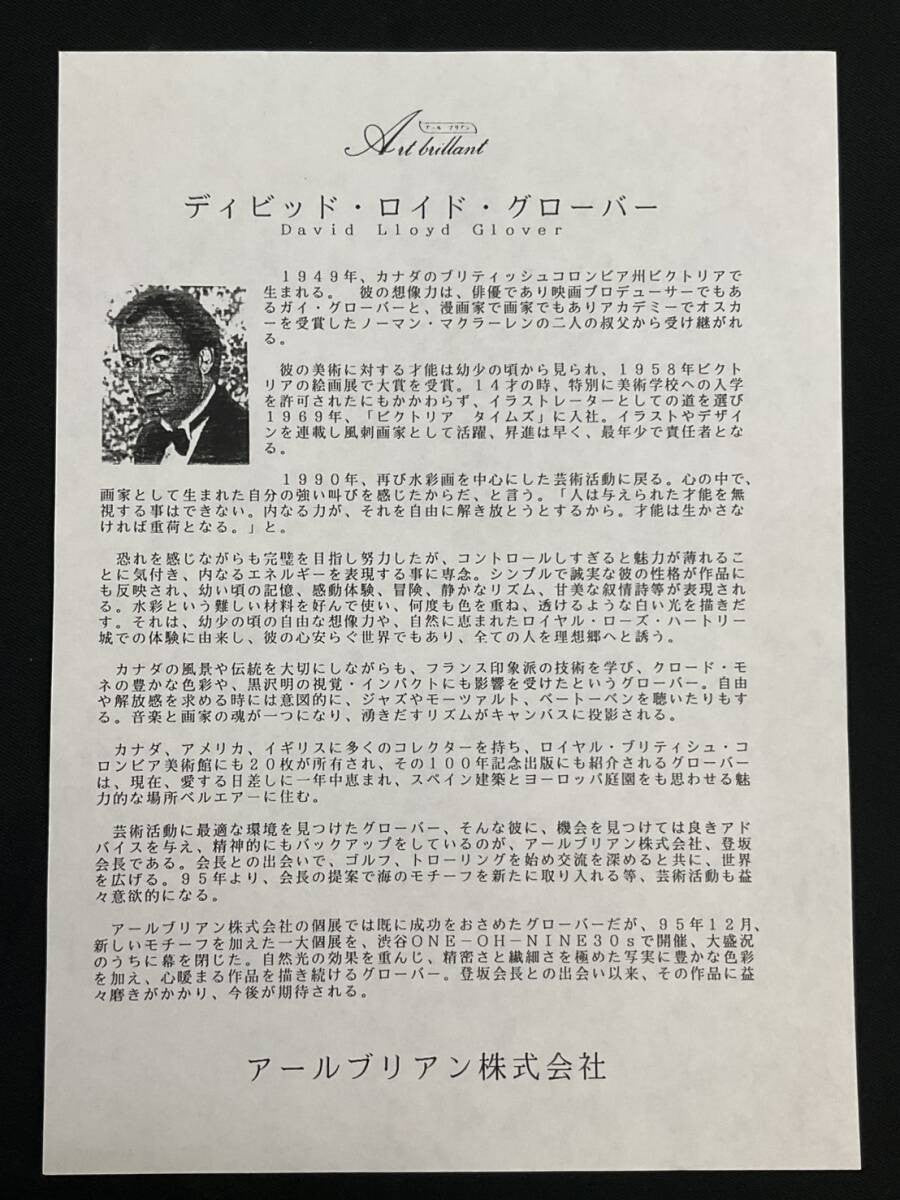 アール ブリアン
Art brillant
ディビッド・ロイド・グローバー
David Lloyd Glover
1949年、カナダのブリティッシュコロンビア州ビクトリアで
生まれる。 彼の想像力は、俳優であり映画プロデューサーでもあ
るガイ・グローバーと、漫画家で画家でもありアカデミーでオスカ
ーを受賞したノーマン・マクラーレンの二人の叔父から受け継がれ
る。
彼の美術に対する才能は幼少の頃から見られ、1958年ビクト
リアの絵画展で大賞を受賞。14才の時、特別に美術学校への入学
を許可されたにもかかわらず、イラストレーターとしての道を選び
1969年、「ビクトリア タイムズ」に入社。イラストやデザイ
ンを連載し風刺画家として活躍、昇進は早く、最年少で責任者とな
る。
1990年、再び水彩画を中心にした芸術活動に戻る。心の中で、
画家として生まれた自分の強い叫びを感じたからだ、と言う。「人は与えられた才能を無
視する事はできない。内なる力が、それを自由に解き放とうとするから。才能は生かさな
ければ重荷となる。」と。
恐れを感じながらも完璧を目指し努力したが、コントロールしすぎると魅力が薄れるこ
とに気付き、内なるエネルギーを表現する事に専念。シンプルで誠実な彼の性格が作品に
も反映され、幼い頃の記憶、感動体験、冒険、静かなリズム、甘美な叙情詩等が表現され
る。水彩という難しい材料を好んで使い、何度も色を重ね、透けるような白い光を描きだ
す。それは、幼少の頃の自由な想像力や、自然に恵まれたロイヤル・ローズ・ハートリー
城での体験に由来し、彼の心安らぐ世界でもあり、全ての人を理想郷へと誘う。
カナダの風景や伝統を大切にしながらも、フランス印象派の技術を学び、クロード・モ
ネの豊かな色彩や、黒沢明の視覚・インパクトにも影響を受けたというグローバー。自由
や解放感を求める時には意図的に、ジャズやモーツァルト、ベートーベンを聴いたりもす
る。音楽と画家の魂が一つになり、湧きだすリズムがキャンバスに投影される。
カナダ、アメリカ、イギリスに多くのコレクターを持ち、ロイヤル・ブリティシュ・コ
ロンビア美術館にも20枚が所有され、その100年記念出版にも紹介されるグローバー
は、現在、愛する日差しに一年中恵まれ、スペイン建築とヨーロッパ庭園をも思わせる魅
力的な場所ベルエアーに住む。
芸術活動に最適な環境を見つけたグローバー、そんな彼に、機会を見つけては良きアド
バイスを与え、精神的にもバックアップをしているのが、アールブリアン株式会社、登坂
会長である。会長との出会いで、ゴルフ、トローリングを始め交流を深めると共に、世界
を広げる。95年より、会長の提案で海のモチーフを新たに取り入れる等、芸術活動も益
々意欲的になる。
アールブリアン株式会社の個展では既に成功をおさめたグローバーだが、95年12月、
新しいモチーフを加えた一大個展を、渋谷ONE－OH－NINE30sで開催、大盛況
のうちに幕を閉じた。自然光の効果を重んじ、精密さと繊細さを極めた写実に豊かな色彩
を加え、心暖まる作品を描き続けるグローバー。登坂会長との出会い以来、その作品に益
々磨きがかかり、今後が期待される。
アールブリアン株式会社